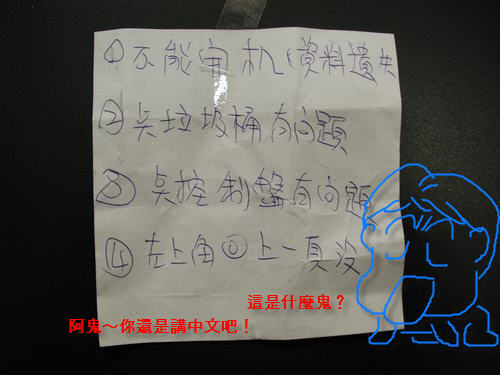 ① 不能机(資料遺失
② 奌垃圾桶有问題
③ 奌控制盤有问題
④ 左上角◎上一頁沒
這是什麼鬼？
阿鬼～你還是講中文吧！